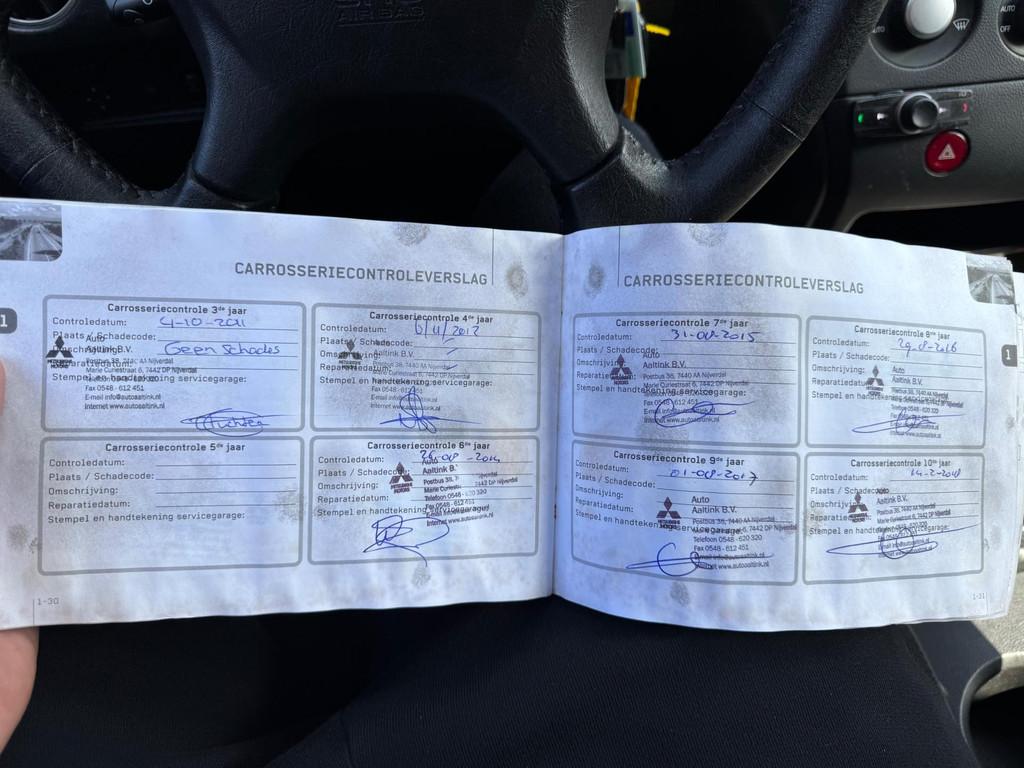 AIRBAG
AUTO
AUTO
OFF
CARROSSERIECONTROLEVERSLAG
1
Carrosseriecontrole 3de jaar
Controledatum: 4-10-2011
Plaats / Schadecode:
Omschrijving: Geen Schades
Reparatiedatum:
Stempel en handtekening servicegarage:
Auto
Aaltink B.V.
Postbus 38, 7440 AA Nijverdal
Fax 0548 - 612 451
E-mail info@autoaaltink.nl
Internet www.autoaaltink.nl
MITSUBISHI
MOTORS
Carrosseriecontrole 4de jaar
Controledatum: 6/11/2012
Plaats / Schadecode:
Omschrijving:
Reparatiedatum:
Stempel en handtekening servicegarage:
Aaltink B.V.
Postbus 38, 7440 AA Nijverdal
Marie Curiestraat 6, 7442 DP Nijverdal
Carrosseriecontrole 5de jaar
Controledatum:
Plaats / Schadecode:
Omschrijving:
Reparatiedatum:
Stempel en handtekening servicegarage:
Carrosseriecontrole 6de jaar
Controledatum:
Plaats / Schadecode:
Omschrijving:
Reparatiedatum:
Stempel en handtekening servicegarage:
Auto
Aaltink B.V.
Postbus 38,
Marie Curiestraat 6, 7442 DP Nijverdal
Telefoon 0548 - 620 320
Fax 0548 - 612 451
Internet www.autoaaltink.nl
MITSUBISHI
MOTORS
1-30
CARROSSERIECONTROLEVERSLAG
1
Carrosseriecontrole 7de jaar
Controledatum: 31-08-2015
Plaats / Schadecode:
Omschrijving:
Reparatiedatum:
Stempel en handtekening servicegarage:
Auto
Aaltink B.V.
Postbus 38, 7440 AA Nijverdal
Marie Curiestraat 6, 7442 DP Nijverdal
Telefoon 0548 - 620 320
Fax 0548 - 612 451
E-mail info@autoaaltink.nl
Internet www.autoaaltink.nl
MITSUBISHI
MOTORS
Carrosseriecontrole 8ste jaar
Controledatum: 29-08-2016
Plaats / Schadecode:
Omschrijving:
Reparatiedatum:
Stempel en handtekening servicegarage:
Auto
Aaltink B.V.
Telefoon 0548 - 620 320
Fax 0548 - 612 451
Carrosseriecontrole 9de jaar
Controledatum: 01-08-2017
Plaats / Schadecode:
Omschrijving:
Reparatiedatum:
Stempel en handtekening servicegarage:
Auto
Aaltink B.V.
Postbus 38, 7440 AA Nijverdal
Marie Curiestraat 6, 7442 DP Nijverdal
Telefoon 0548 - 620 320
Fax 0548 - 612 451
E-mail info@autoaaltink.nl
Internet www.autoaaltink.nl
Carrosseriecontrole 10de jaar
Controledatum: 14-2-2018
Plaats / Schadecode:
Omschrijving:
Reparatiedatum:
Stempel en handtekening servicegarage:
Auto
Aaltink B.V.
Postbus 38, 7440 AA Nijverdal
Marie Curiestraat 6, 7442 DP Nijverdal
1-31